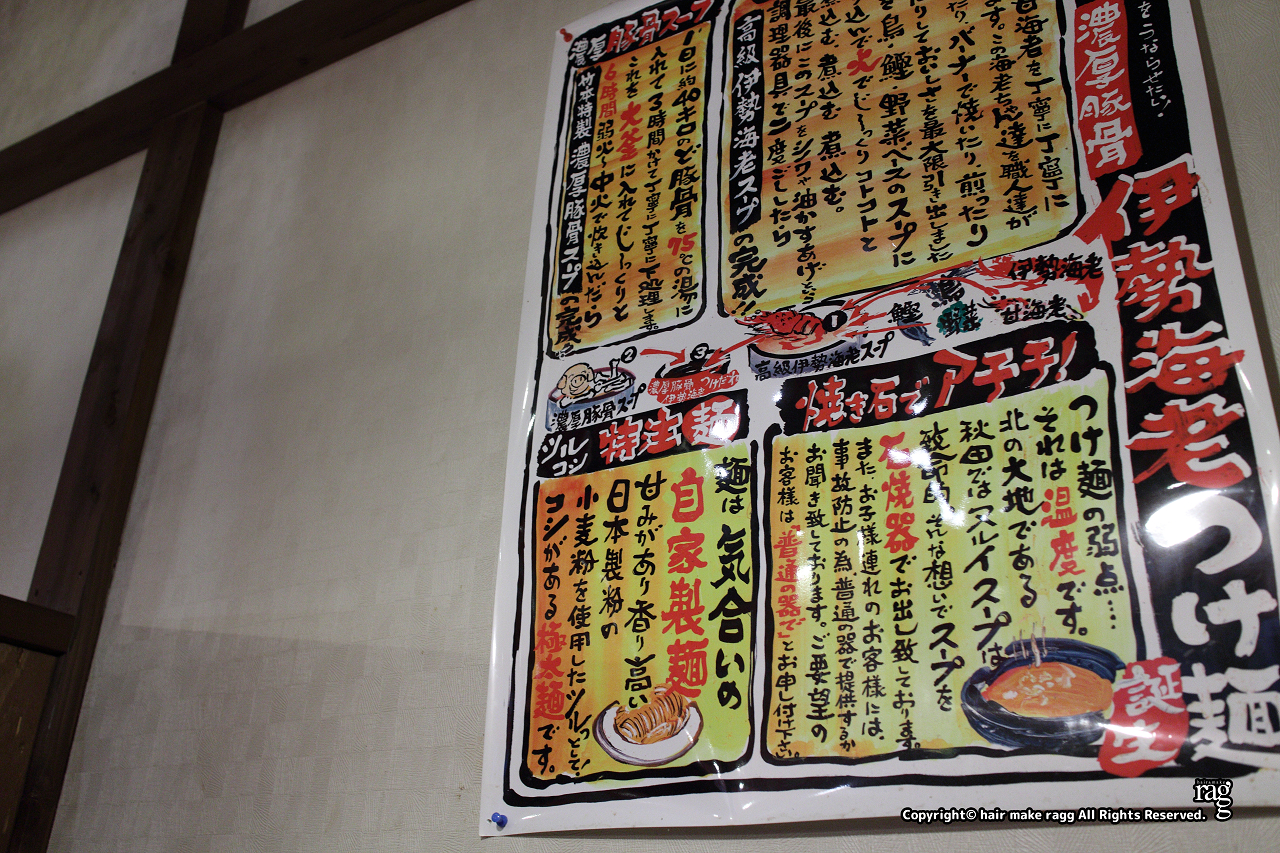 をうならせたい!
濃厚豚骨
伊勢海老つけ麺
誕生
甘海老を丁寧に丁寧に
ます。この海老ちゃん達を職人達が
たり、バーナーで焼いたり、煎ったり
たりしておいしさを最大限引き出しました
を鳥・鰹・野菜ベースのスープに
込んで火でじーっくりコトコトと
煮込む、煮込む、煮込む。
最後にこのスープをシノワや油かすあげという
調理器具で二度ごししたら
高級伊勢海老スープの完成!!
濃厚豚骨スープ
1日に約40キロのど豚骨を75℃の湯に
入れて3時間かけて丁寧に丁寧に下処理します。
これを大釜に入れてじーっくりと
6時間弱火〜中火で炊き込んだら
竹本特製濃厚豚骨スープの完成!!
伊勢海老
鶏
甘海老
野菜
鰹
①
高級伊勢海老スープ
②
濃厚豚骨スープ
③
濃厚豚骨つけだれ
伊勢海老
焼き石でアチチ!
つけ麺の弱点…
それは温度です。
北の大地である
秋田ではヌルイスープは
致命的 そんな想いでスープを
石焼器でお出し致しております。
また、お子様連れのお客様には、
事故防止の為普通の器で提供するか
お聞き致しております。ご要望の
お客様は「普通の器で」とお申し付け下さい。
ツルコシ特注麺
麺は気合いの
自家製麺
甘みがあり香り高い
日本製粉の
小麦粉を使用したツルっとして、
コシがある極太麺です。
hair&make
rag
Copyright© hair make ragg All Rights Reserved.